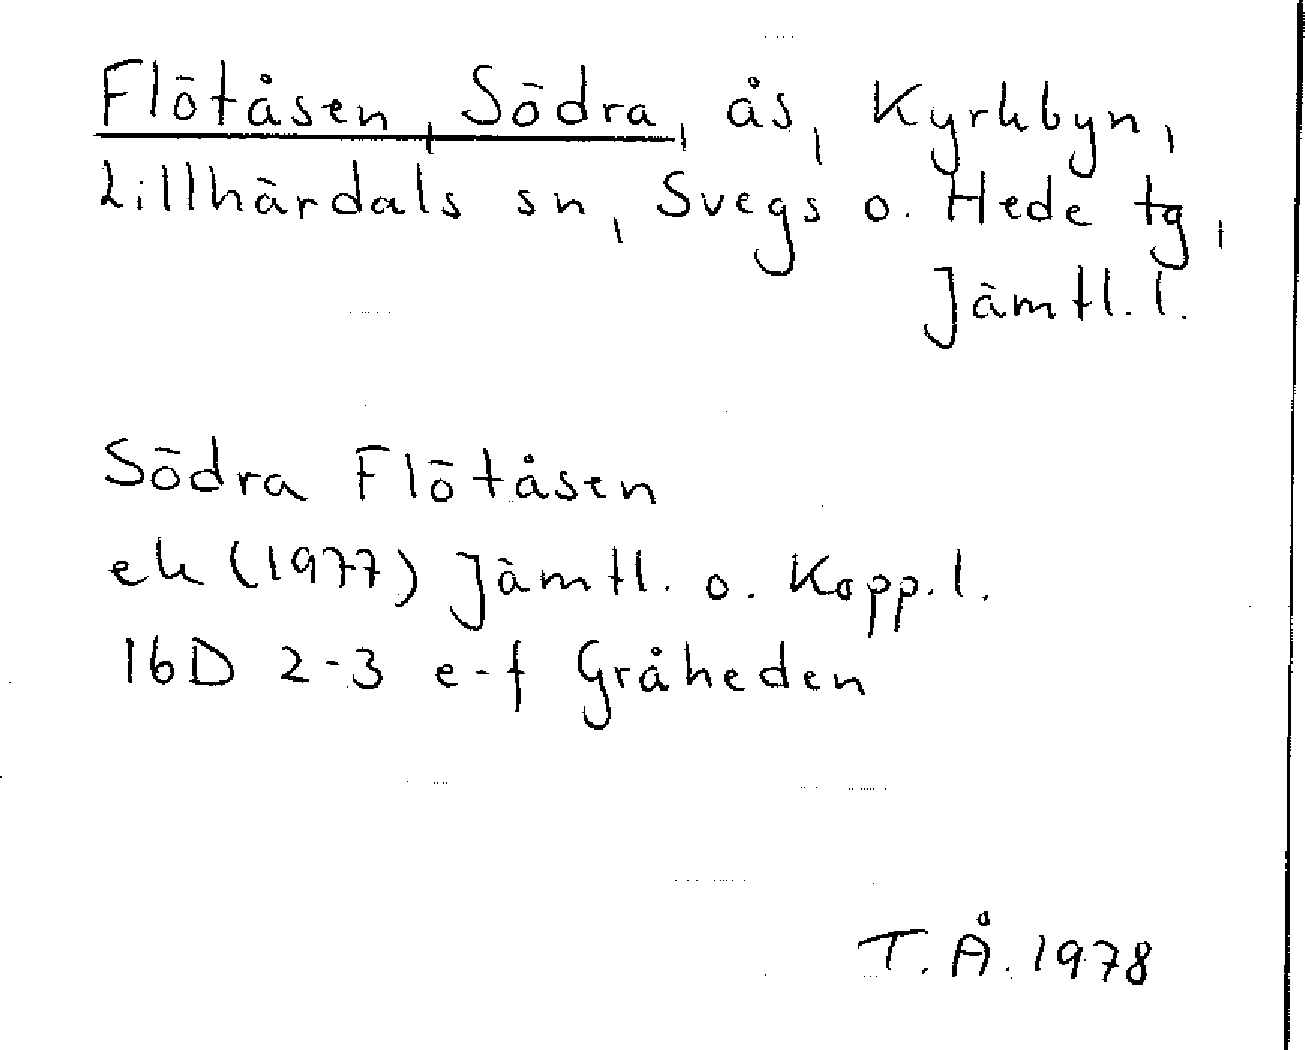 Flötåsen, Södra, ås, Kyrkbyn,
Lillhärdals sn, Svegs o. Hede tg,
Jämtl. l.
Södra Flötåsen
ek (1977) Jämtl. o. Kopp. l.
16D 2-3 e-f Gråheden
T. Å. 1978